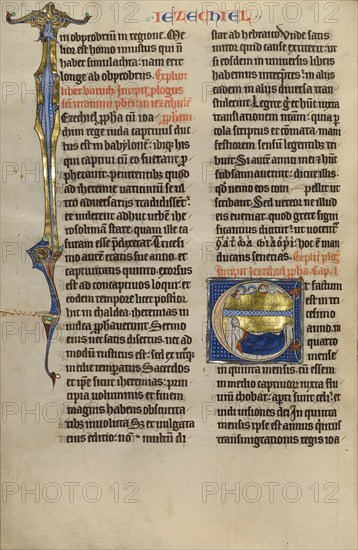 IEZECHIEL
in obprobriū in regione. Me
lior est homo iustus qui n̄
habet simulachra: nam erit
longe ab obprobriis. Explicit
liber baruch. Incipit prologus
Ezechiel ꝓpha cū ioa
chim rege iuda captiuus duc
tus est in babylonē: ibiqꝫ hiis
qui captiui cū eo fuerant ꝓ
phetauit. penitentibus quod
ad iheremie uaticiniū se ul
tro aduersariis tradidissent:
et uiderent adhuc urbē ihe
rosolimā stare. quam ille ca
suram esse ꝓdixerat. Tricesi
mo autem etatis sue anno. et
captiuitatis quinto. exorsus
est ad concaptiuos loqui. et
eodem tempore licet posteri
hic in chaldea. iheremias in
iudea ꝓphauerunt. Sermo
eius nec satis disertus. nec ad
modū rusticus est: sed ex utroqꝫ
medie temperatus. Sacerdos
et ipse sicut iheremias: prin
cipia uoluminis et finem
magnis habens obscurita
tibus inuoluta. Sꝫ et uulgata
eius editio. nō multū di
stat ab hebraico. Unde satis
miror quid cause extiterit. ut
si eosdem in uniuersis libris
habemus interpretes: in aliis
eadem in aliis diuersa tran
stulerint. Legite ergo hūc iuxta
translationem nostram: quia ꝑ
cola scriptus et cōmata. mani
festiorem sensū legentibus tri
buit. Si autē amici mei et hūc
subsannauerint: dicite illis.
qꝫ nemo eos compellit ut
scribant. Sed uereor ne illud
eis eueniat. quod grece signi
ficantius dicitur. ut uocentur
hoc ē man
ducans senecias. Explicit plog
Incipit iezechiel ꝓpha. Cap. I
Et factum
est in tri
cesimo
anno. in
quarto
mense
in quinta mensis. cū essem
in medio captiuorum iuxta flu
uiū chobar. aperti sunt celi: et
uidi uisiones dei. In quinta
mensis ipse est annus quintus
transmigrationis regis ioa
PHOTO12